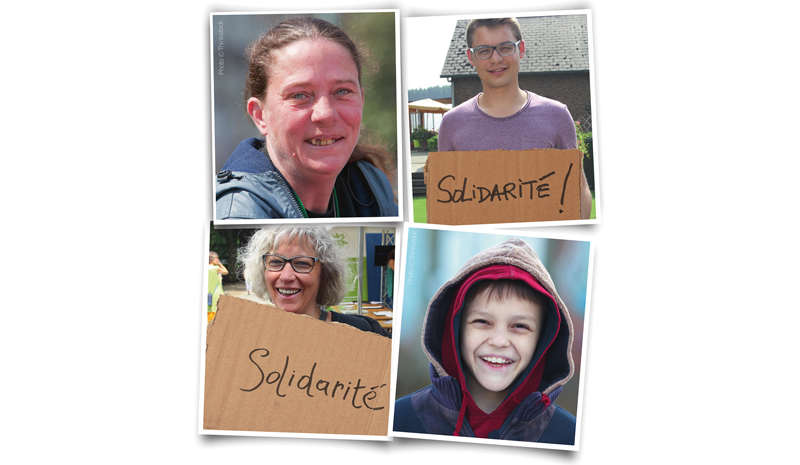 Photo © Thinkstock
SOLIDARITÉ!
Solidarité
Photo © Thinkstock